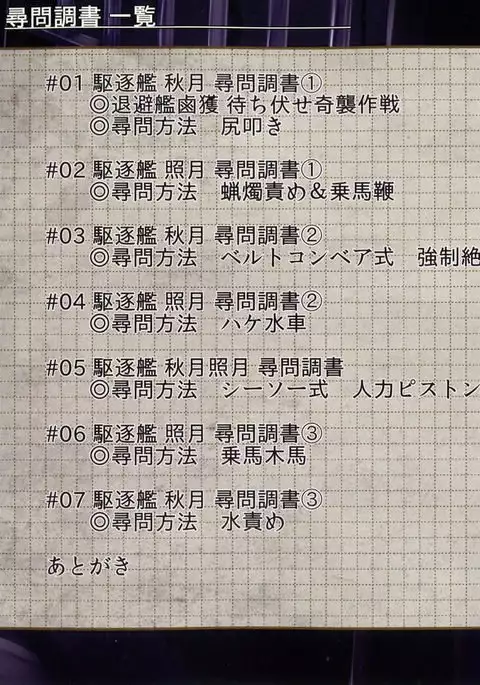 尋問調書 一覧
#01 駆逐艦 秋月 尋問調書①
◎退避艦鹵獲 待ち伏せ奇襲作戦
◎尋問方法 尻叩き
#02 駆逐艦 照月 尋問調書①
◎尋問方法 蝋燭責め＆乗馬鞭
#03 駆逐艦 秋月 尋問調書②
◎尋問方法 ベルトコンベア式 強制絶
#04 駆逐艦 照月 尋問調書②
◎尋問方法 ハケ水車
#05 駆逐艦 秋月照月 尋問調書
◎尋問方法 シーソー式 人力ピストン
#06 駆逐艦 照月 尋問調書③
◎尋問方法 乗馬木馬
#07 駆逐艦 秋月 尋問調書③
◎尋問方法 水責め
あとがき